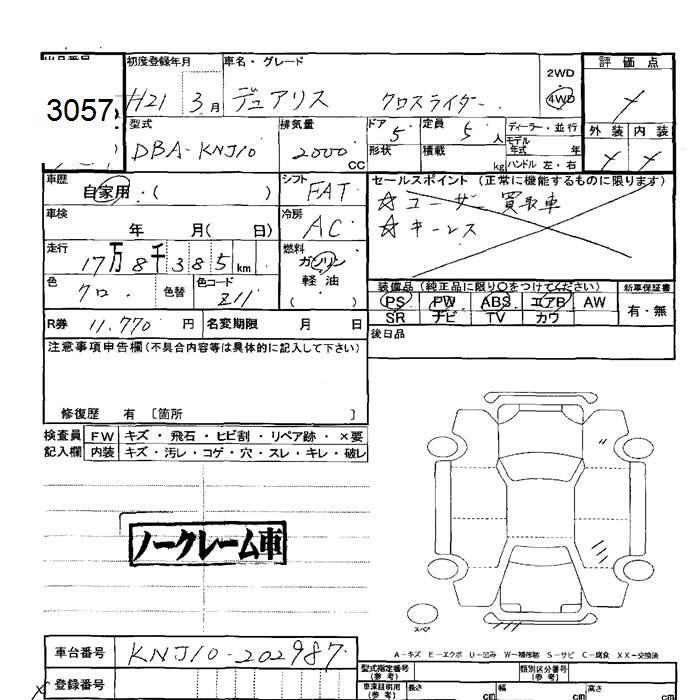 出品番号 初度登録年月 車名・グレード 評価点
3057 H21 3月 デュアリス クロスライダー 2WD 4WD
型式 排気量 ドア 5 定員 5人 ディーラー・並行 外装 内装
DBA-KNJ10 2000 CC 形状 積載 kg モデル年式 年 ハンドル 左・右
車歴 自家用・( ) シフト FAT セールスポイント (正常に機能するものに限ります)
☆ユーザー買取車
車検 年 月( 日) 冷房 AC ☆キーレス
走行 17万8千385km 燃料 ガソリン 軽油 ( )
色 クロ 色替 色コード Z11 装備品 (純正品に限り○をつけてください) 新車保証書
PS PW ABS エアB AW 有・無
R券 11,770円 名変期限 月 日 SR ナビ TV カワ
注意事項申告欄(不具合内容等は具体的に記入して下さい) 後日品
修復歴 有 〔箇所 〕
検査員 FW キズ・飛石・ヒビ割・リペア跡・×要
記入欄 内装 キズ・汚レ・コゲ・穴・スレ・キレ・破レ
ノークレーム車
スペア
A-キズ E-エクボ U-凹み W-補修跡 S-サビ C-腐食 XX-交換済
車台番号 KNJ10-202987
型式指定番号(参考) 類別区分番号(参考)
登録番号 車庫証明用(参考) 長さ cm 幅 cm 高さ cm